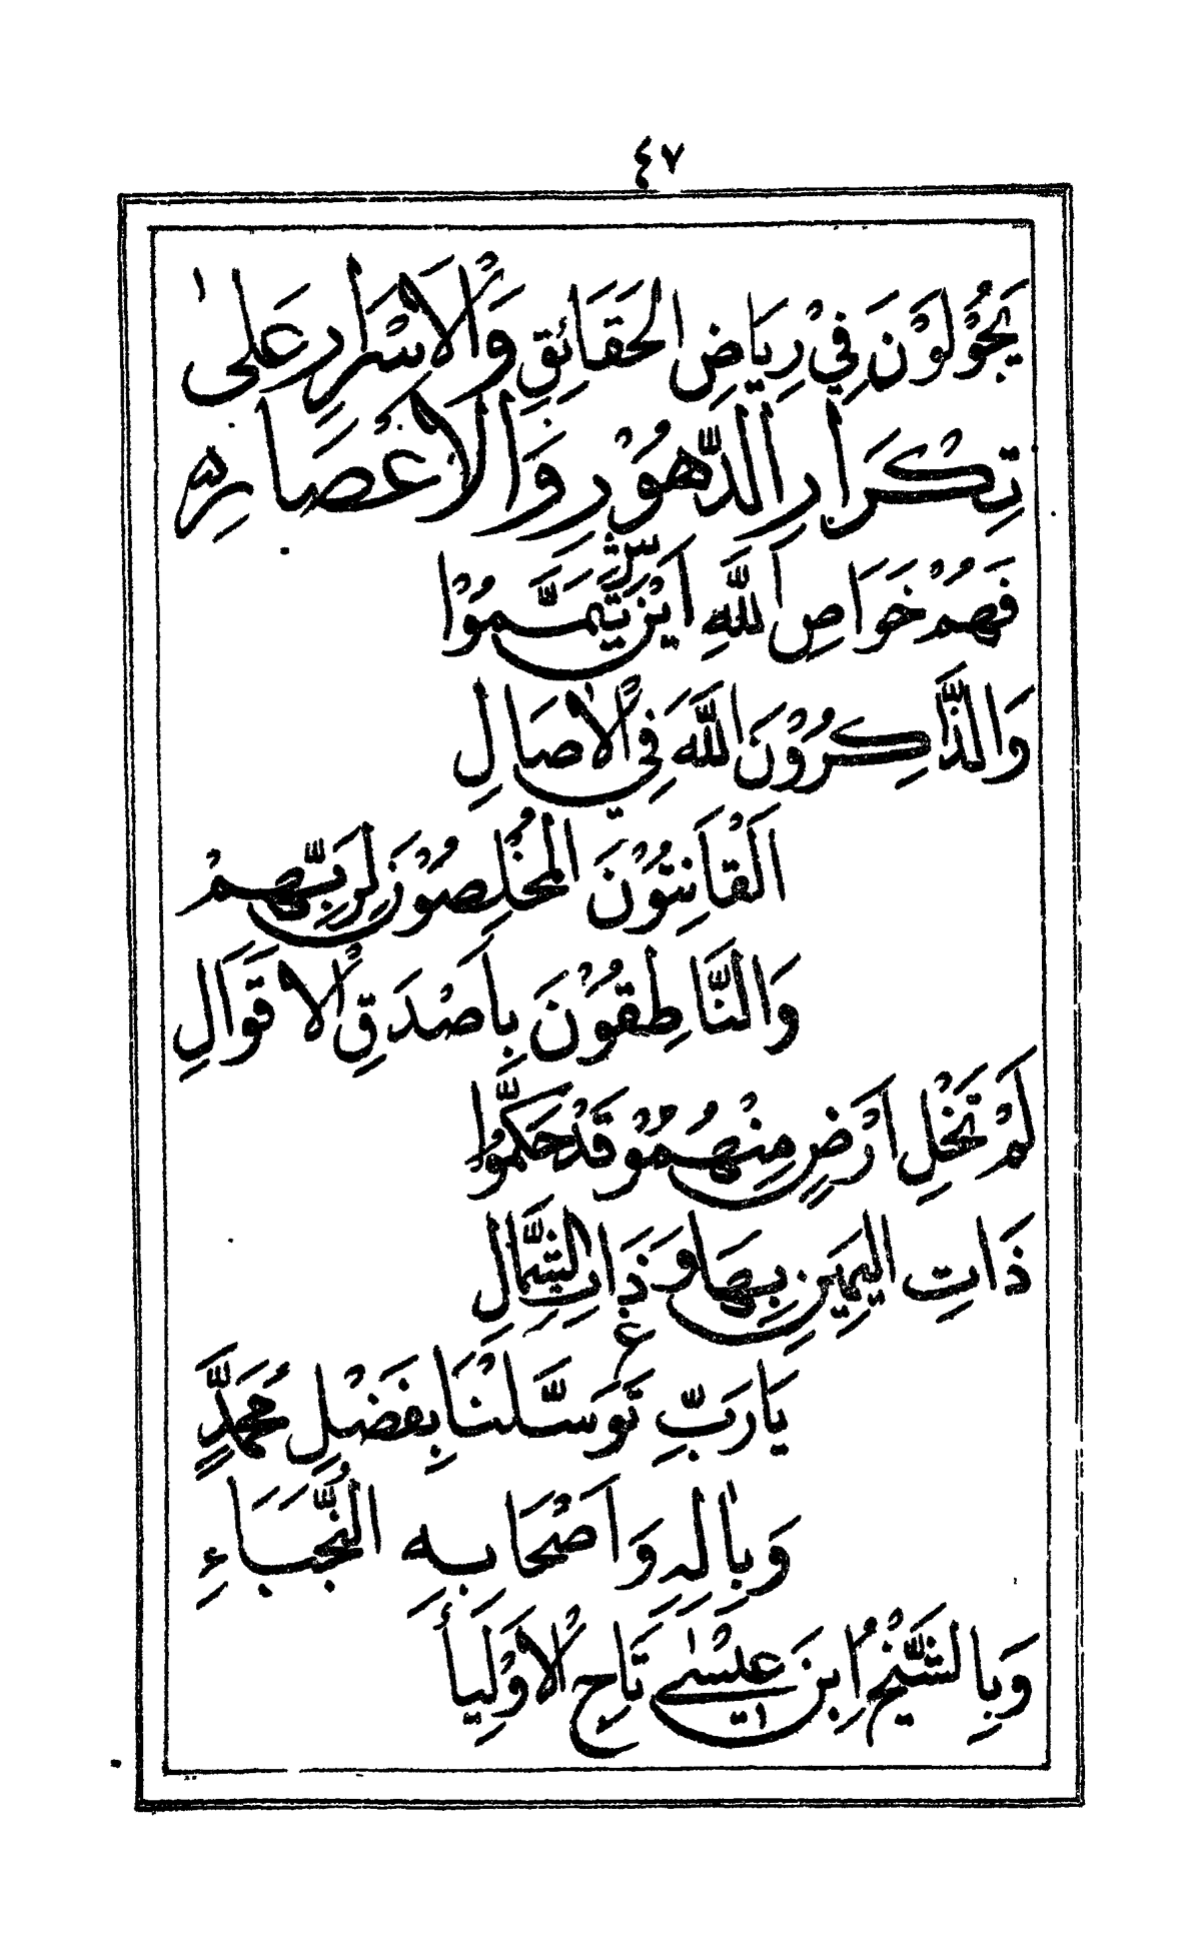 ٤٧
يَجُوْلُوْنَ فِيْ رِيَاضِ الْحَقَائِقِ وَالْاَسْرَارِ عَلٰى
تِكْرَارِ الدُّهُوْرِ وَالْاَعْصَارِ
فَهُمْ خَوَاصُ اللّٰهِ اَيْنَ تَيَمَّمُوْا
وَالذَّاكِرُوْنَ اللّٰهَ فِي الْاٰصَالِ
اَلْقَانِتُوْنَ الْمُخْلِصُوْنَ لِرَبِّهِمْ
وَالنَّاطِقُوْنَ بِاَصْدَقِ الْاَقْوَالِ
لَمْ تَخْلُ اَرْضٌ مِنْهُمُوْ قَدْ حَكَّمُوْا
ذَاتِ الْيَمِيْنِ بِهَا وَذَاتِ الشِّمَالِ
يَارَبِّ تَوَسَّلْنَا بِفَضْلِ مُحَمَّدٍ
وَبِاٰلِهِ وَاَصْحَابِهِ النُّجَبَاءِ
وَبِالشَّيْخِ ابْنِ عِيْسٰى تَاجِ الْاَوْلِيَأ